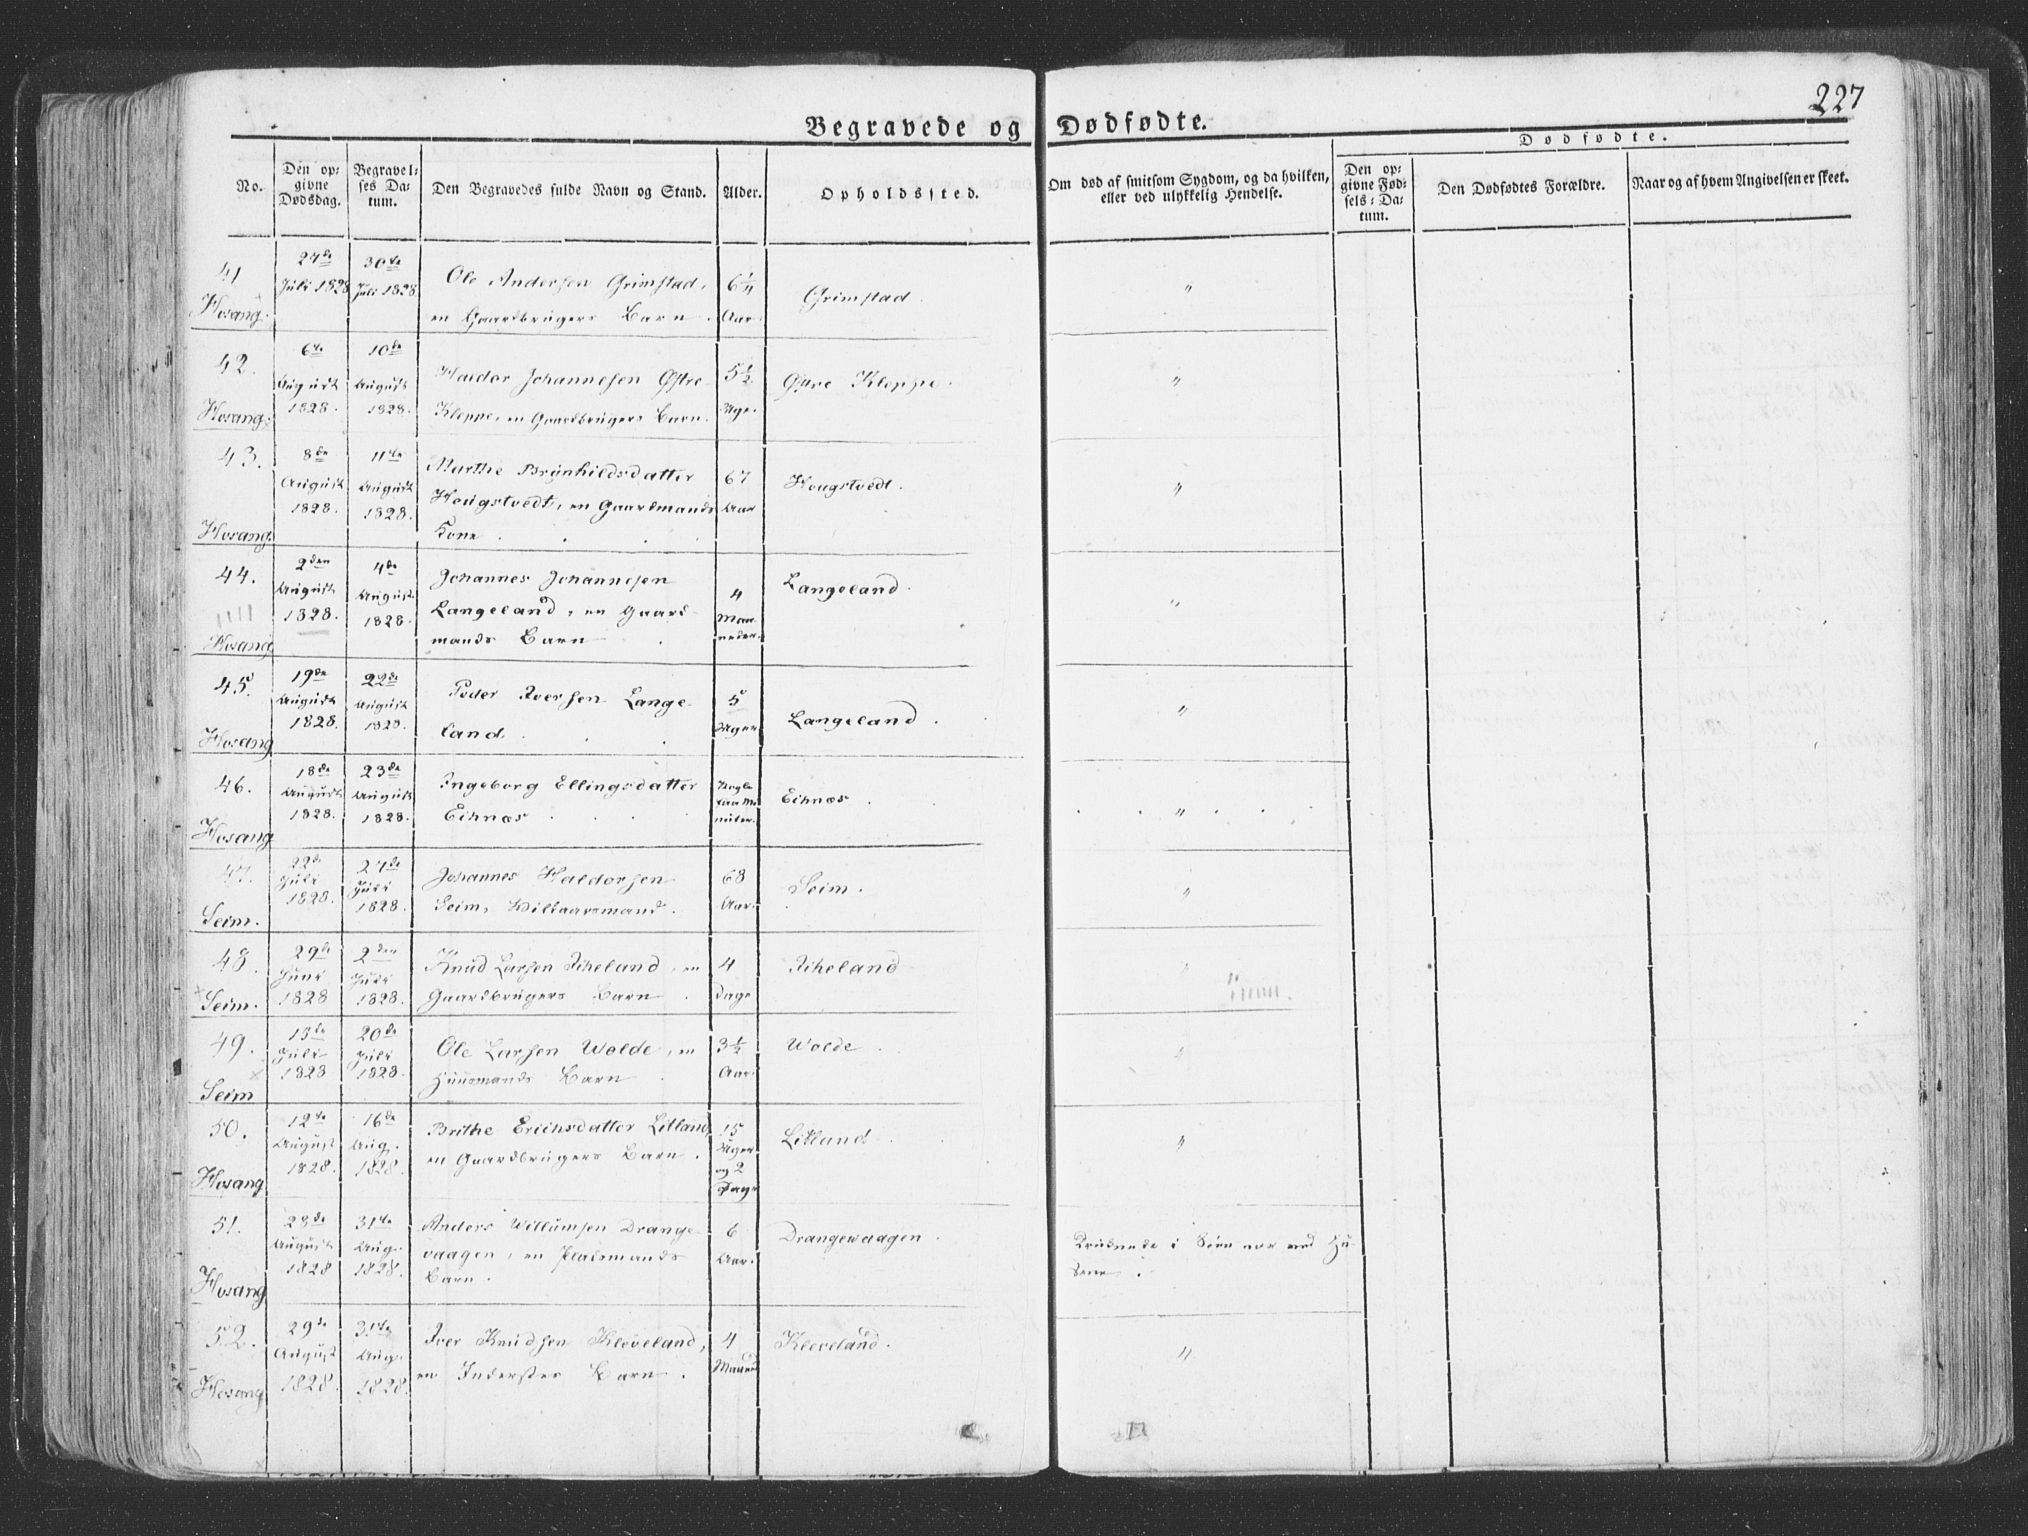 227
Begravede og Dødfødte.
Dødfødte.
No.
Den op:
givne
Dødsdag.
Begravel:
ses Da:
tum.
Den Begravedes fulde Navn og Stand.
Alder.
Opholdssted.
Om død af smitsom Sygdom, og da hvilken,
eller ved ulykkelig Hendelse.
Den op:
givne Fød:
sels: Da:
tum.
Den Dødfødtes Forældre.
Naar og af hvem Angivelsen er skeet.
41
Hosang.
24de
Juli 1828
30te
Juli 1828
Ole Andersen Grimstad,
en Gaardbrugers Barn.
6¼
Aar.
Grimstad.
"
42.
Hosang.
6te
August
1828.
10de
August
1828.
Haldor Johannesen Østre
Kleppe, en Gaardbrugers Barn.
5½
Uge.
Østre Kleppe.
"
43.
Hosang.
8de
August
1828.
11te
August
1828.
Marthe Brynhildsdatter
Hougstvedt, en Gaardmands
Kone.
67
Aar
Hougstvedt.
"
44.
Hosang
2den
August
1828.
4de
August
1828.
Johannes Johannesen
Langeland, en Gaard-
mands Barn
4
Maa-
neder.
Langeland.
"
45.
Hosang
19de
August
1828.
22de
August
1828.
Peder Iversen Lange-
land.
5
Uger
Langeland.
"
46.
Hosang
18de
August
1828.
23de
August
1828.
Ingeborg Ellingsdatter
Eihnæs.
Nogle
faa Mi-
nuter.
Eihnæs.
"
47.
Seim.
22de
Juli
1828.
27de
Juli
1828.
Johannes Haldorsen
Seim, Wilkaarsmand.
68
Aar.
Seim.
"
48.
Seim.
29de
Juni
1828
2den
Juli
1828.
Knud Larsen Riheland, en
Gaardbrugers Barn.
4
Dage
Riheland
"
49.
Seim
15de
Juli
1828
20de
Juli
1828.
Ole Larsen Wolde, en
Huusmands Barn.
3½
Aar.
Wolde.
"
50.
Hosang
12te
August
1828
16de
Aug.
1828.
Brithe Erichsdatter Litland,
en Gaardbrugers Barn.
15
Uger
og 2
Dage
Litland.
"
51.
Hosang
28de
August
1828
31te
Aug.
1828.
Anders Willumsen Drange-
vaagen, en Pladsmands
Barn.
6
Aar.
Drangewaagen.
Druknede i Søen nær ved Hu-
sene.
52.
Hosang
29de
August
1828.
31te
Aug.
1828.
Iver Knudsen Kleveland,
en Inderstes Barn.
4
Maaned
Kleveland.
"